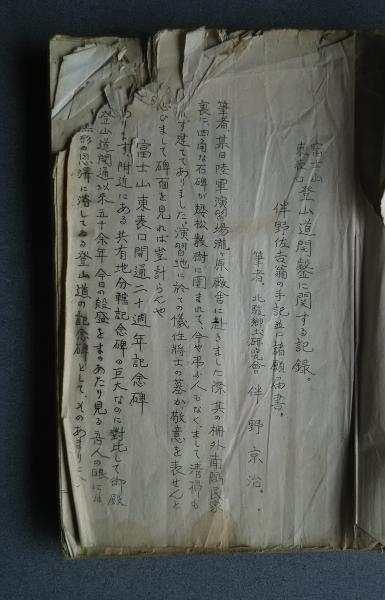 富士山
東表口 登山道開鑿に関する記録。
伴野佐吉翁の手記並に諸願面書。
筆者、北駿郷土研究会 伴野京治。
筆者、某日陸軍演習場瀧ヶ原廠舎に赴きました際其の柵外南隅民家
裏に、四角な石碑が矮松数樹に囲まれて、今や弔ふ人もなく、まして清掃も
ず建ててありました。演習地に於ての犠牲将士の墓か、敬意を表せんと
心ひまして碑面を見れば豈計らんや
富士山東表口開通二十週年記念碑
ます附近にある共有地分轄記念碑の巨大なのに対比して御殿
登山道開通以来五十余年今日の殷盛をまのあたり見る吾人の眼には
形の恩沢に浴してゐる登山道の記念碑として、そのあまりに